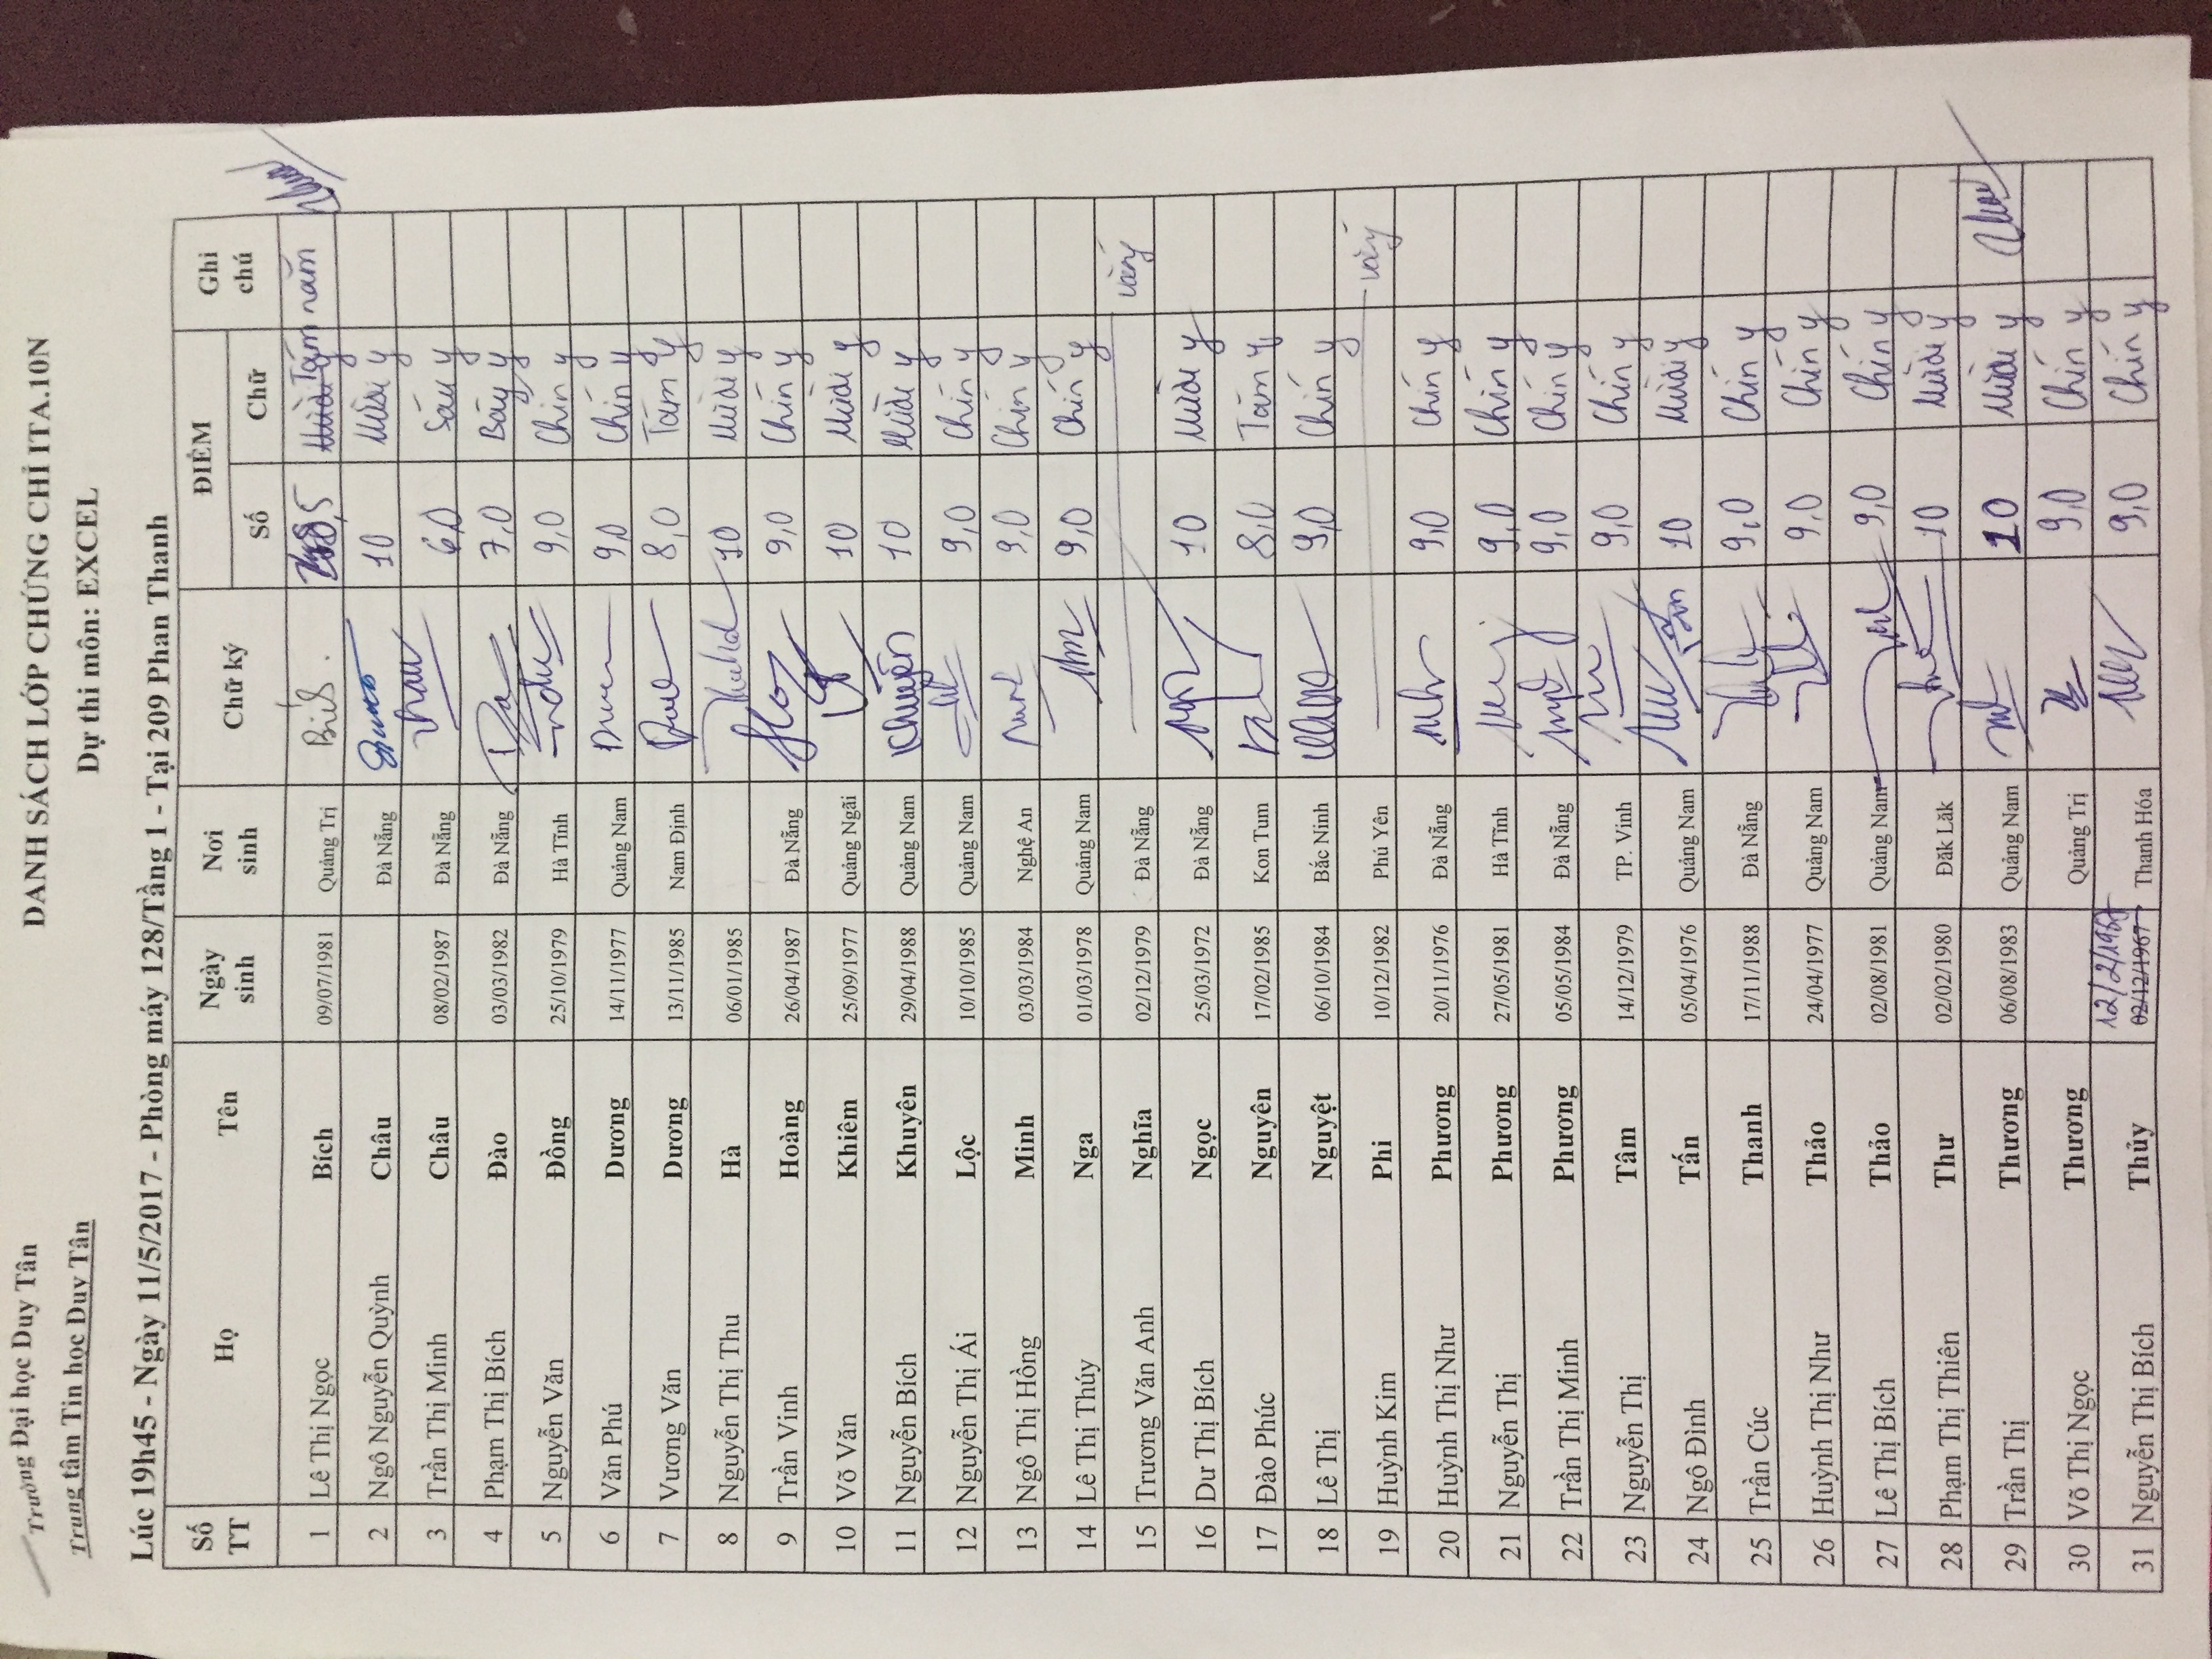 Trường Đại học Duy Tân
DANH SÁCH LỚP CHỨNG CHỈ ITA.10N
Trung tâm Tin học Duy Tân
Dự thi môn: EXCEL
Lúc 19h45 - Ngày 11/5/2017 - Phòng máy 128/Tầng 1 - Tại 209 Phan Thanh
Số TT Họ Tên Ngày sinh Nơi sinh Chữ ký ĐIỂM Ghi chú
Số Chữ
1 Lê Thị Ngọc Bích 09/07/1981 Quảng Trị Bích 8,5 Tám năm
2 Ngô Nguyễn Quỳnh Châu Đà Nẵng 10 Mười y
3 Trần Thị Minh Châu 08/02/1987 Đà Nẵng 6,0 Sáu y
4 Phạm Thị Bích Đào 03/03/1982 Đà Nẵng 7,0 Bảy y
5 Nguyễn Văn Đồng 25/10/1979 Hà Tĩnh 9,0 Chín y
6 Văn Phú Dương 14/11/1977 Quảng Nam 9,0 Chín y
7 Vương Văn Dương 13/11/1985 Nam Định 8,0 Tám y
8 Nguyễn Thị Thu Hà 06/01/1985 10 Mười y
9 Trần Vinh Hoàng 26/04/1987 Đà Nẵng 9,0 Chín y
10 Võ Văn Khiêm 25/09/1977 Quảng Ngãi 10 Mười y
11 Nguyễn Bích Khuyên 29/04/1988 Quảng Nam Khuyên 10 Mười y
12 Nguyễn Thị Ái Lộc 10/10/1985 Quảng Nam 9,0 Chín y
13 Ngô Thị Hồng Minh 03/03/1984 Nghệ An 9,0 Chín y
14 Lê Thị Thúy Nga 01/03/1978 Quảng Nam 9,0 Chín y
15 Trương Văn Anh Nghĩa 02/12/1979 Đà Nẵng vắng
16 Dư Thị Bích Ngọc 25/03/1972 Đà Nẵng 10 Mười y
17 Đào Phúc Nguyên 17/02/1985 Kon Tum 8,0 Tám y
18 Lê Thị Nguyệt 06/10/1984 Bắc Ninh 9,0 Chín y
19 Huỳnh Kim Phi 10/12/1982 Phú Yên vắng
20 Huỳnh Thị Như Phương 20/11/1976 Đà Nẵng 9,0 Chín y
21 Nguyễn Thị Phương 27/05/1981 Hà Tĩnh 9,0 Chín y
22 Trần Thị Minh Phương 05/05/1984 Đà Nẵng 9,0 Chín y
23 Nguyễn Thị Tâm 14/12/1979 TP. Vinh 9,0 Chín y
24 Ngô Đình Tấn 05/04/1976 Quảng Nam 10 Mười y
25 Trần Cúc Thanh 17/11/1988 Đà Nẵng 9,0 Chín y
26 Huỳnh Thị Như Thảo 24/04/1977 Quảng Nam 9,0 Chín y
27 Lê Thị Bích Thảo 02/08/1981 Quảng Nam 9,0 Chín y
28 Phạm Thị Thiên Thư 02/02/1980 Đăk Lăk 10 Mười y
29 Trần Thị Thương 06/08/1983 Quảng Nam 10 Mười y
30 Võ Thị Ngọc Thương Quảng Trị 9,0 Chín y
31 Nguyễn Thị Bích Thủy 02/12/1967 12/2/1967 Thanh Hóa 9,0 Chín y